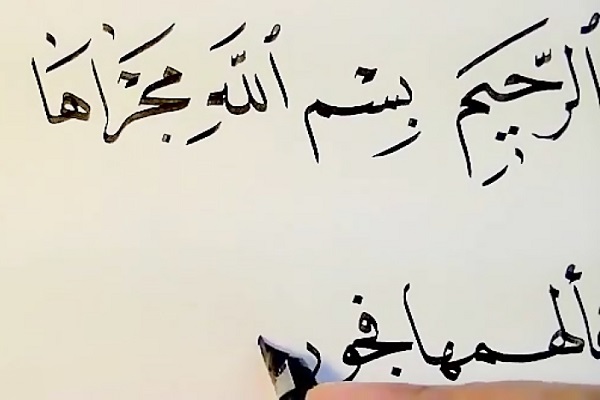 ٱلرَّحِيمِ بِسْمِ ٱللَّهِ مَجْرَاهَا
فألهمها فجور